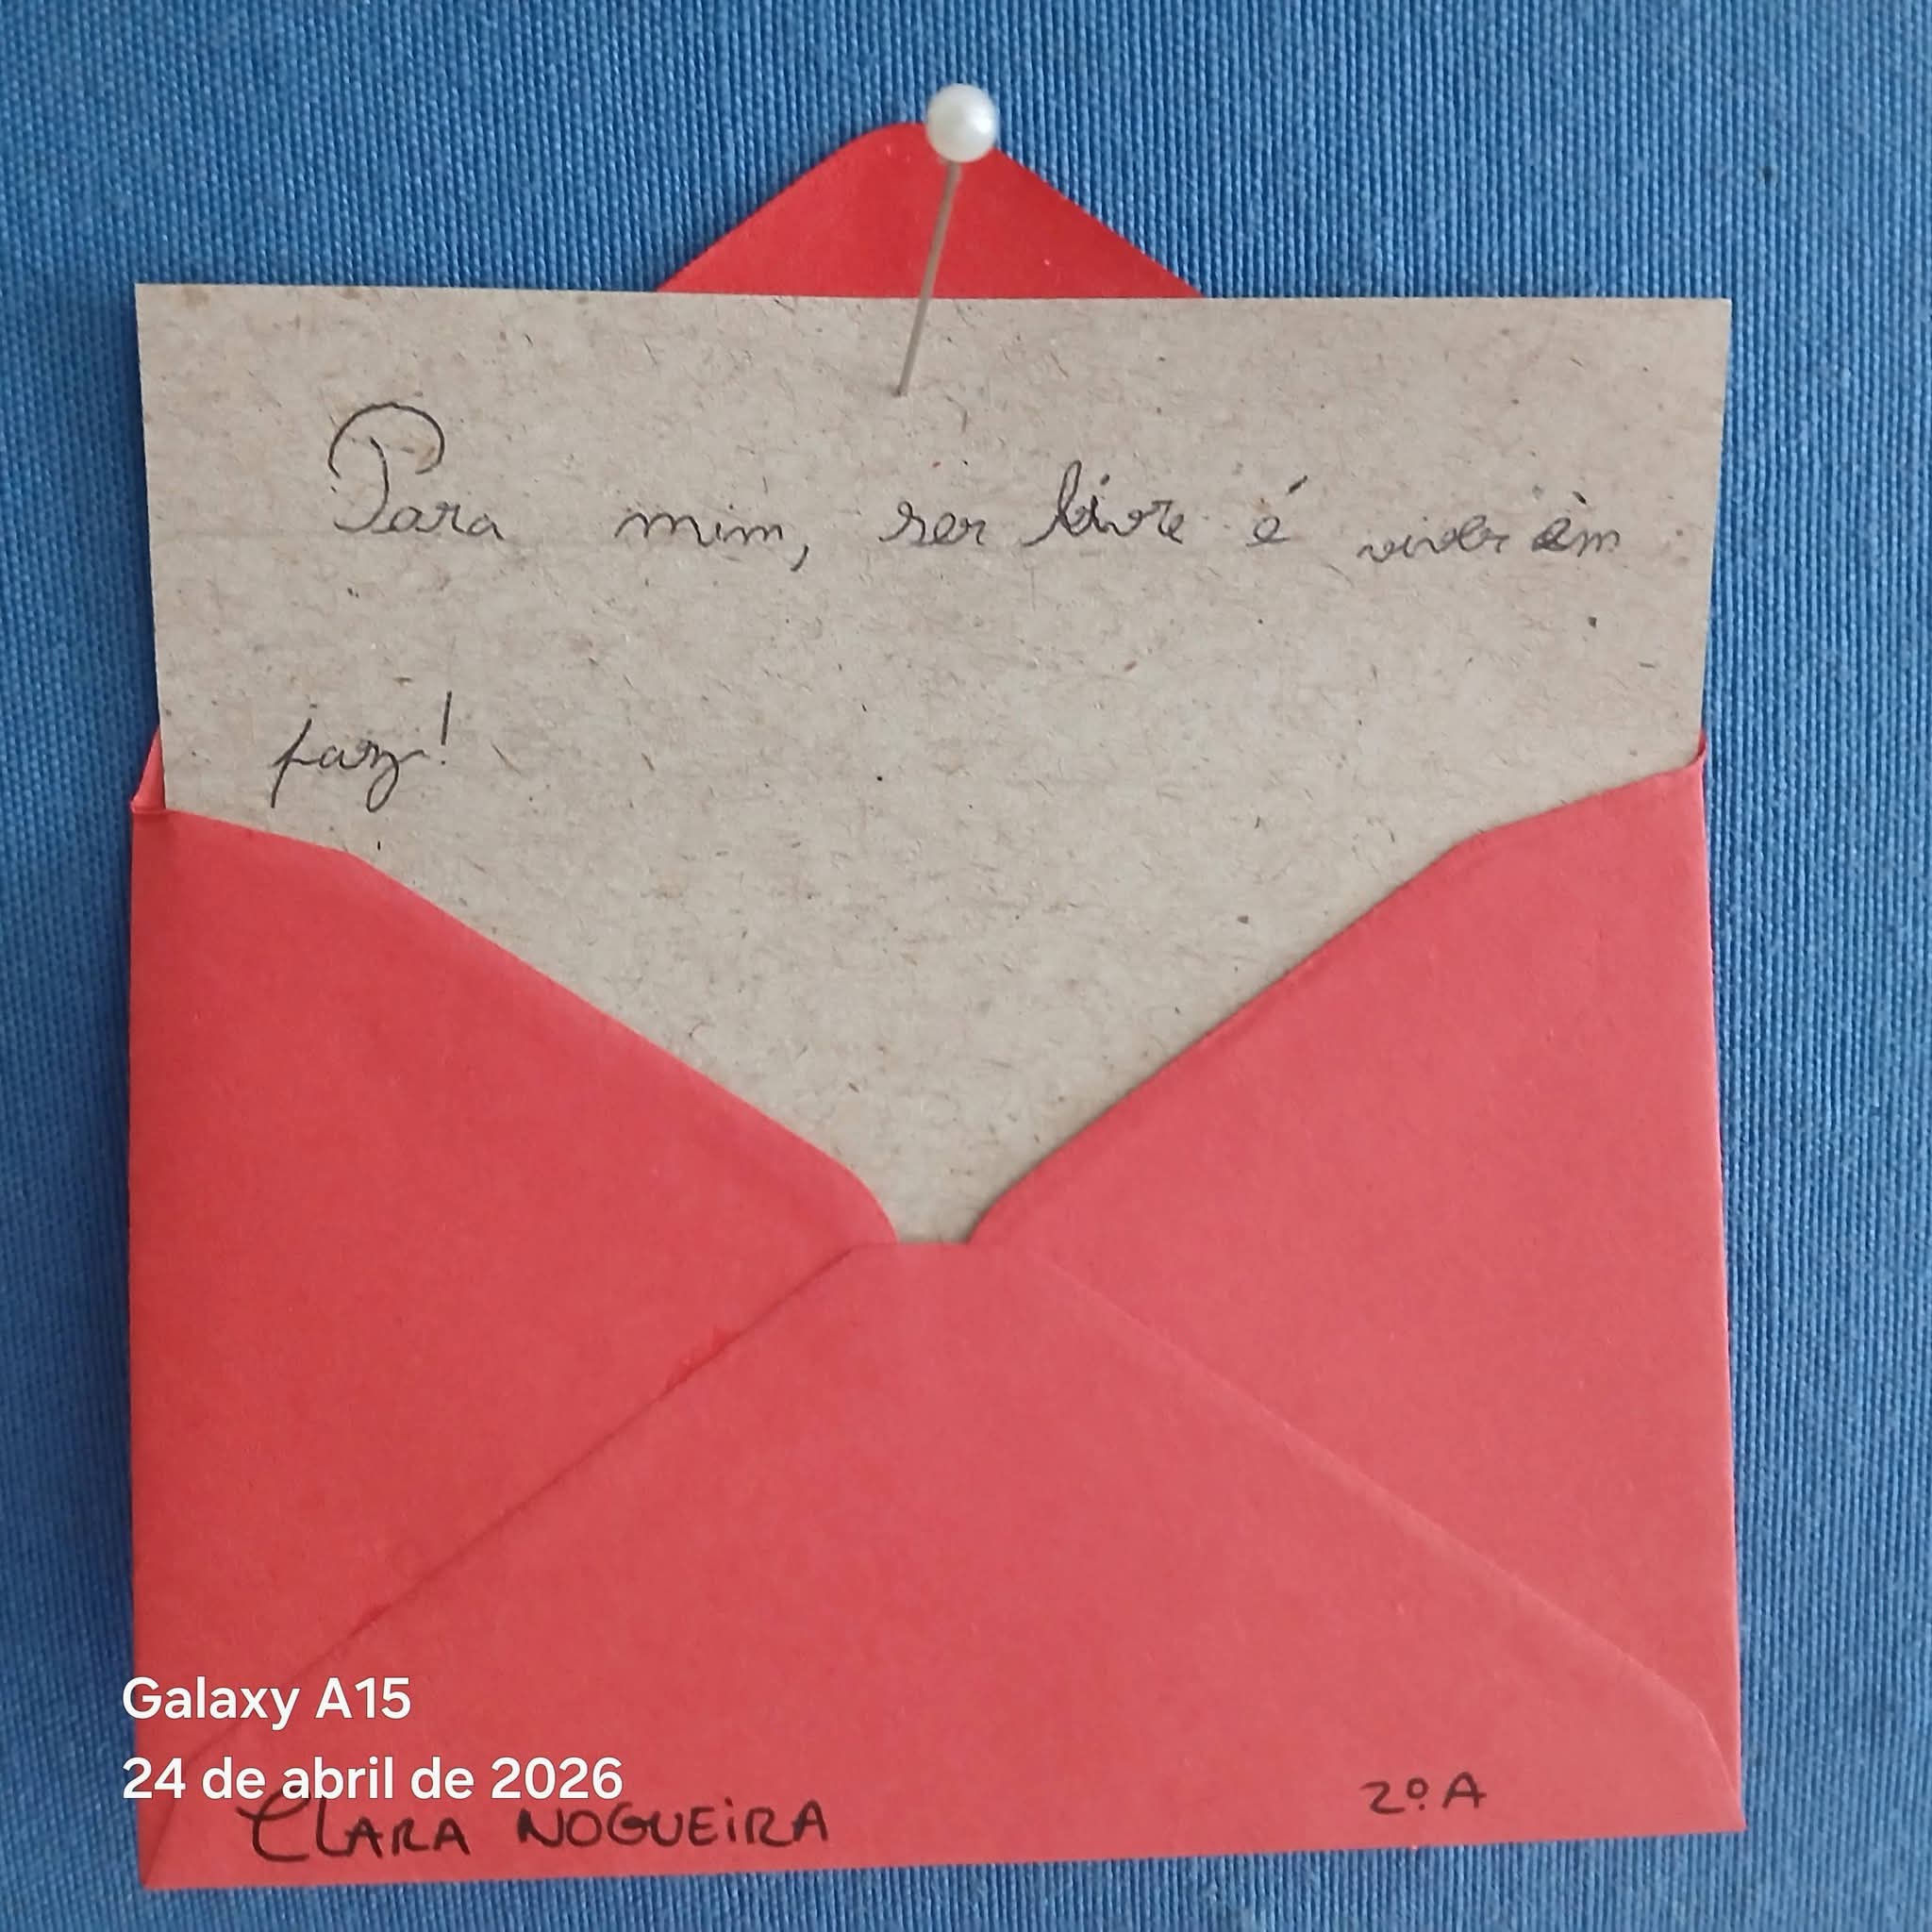 Para mim, ser livre é viver em
paz!
Galaxy A15
24 de abril de 2026
CLARA NOGUEIRA
2º A